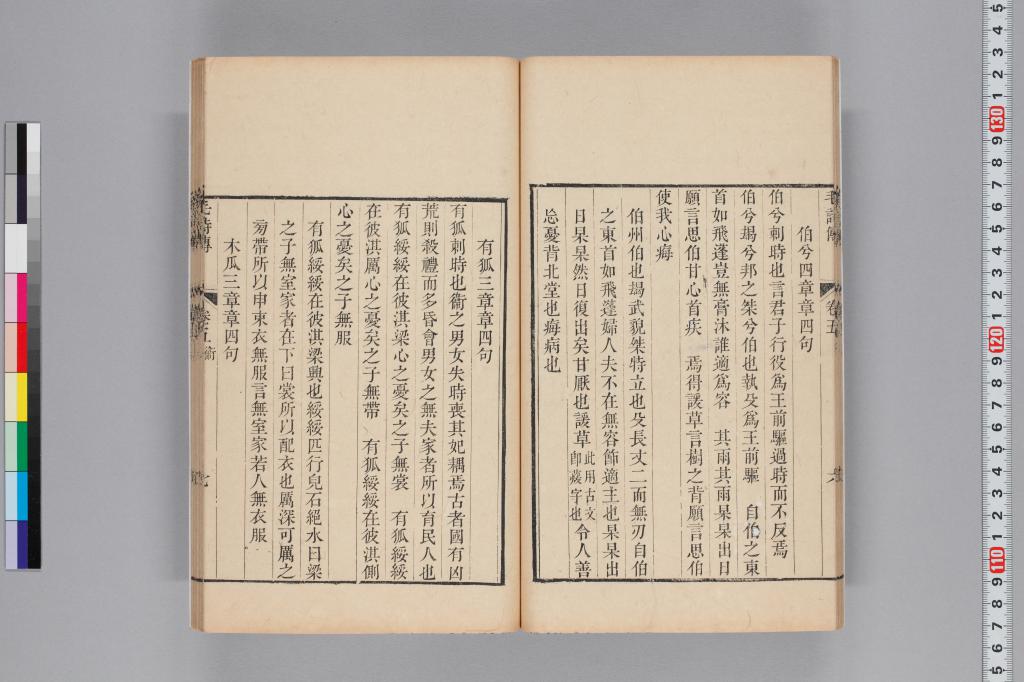 伯兮四章章四句
伯兮刺時也言君子行役爲王前驅過時而不反焉
伯兮朅兮邦之桀兮伯也執殳爲王前驅　自伯之東
首如飛蓬豈無膏沐誰適爲容　其雨其雨杲杲出日
願言思伯甘心首疾　焉得諼草言樹之背願言思伯
使我心痗
伯州伯也朅武貌桀特立也殳長丈二而無刃自伯
之東首如飛蓬婦人夫不在無容飾適主也杲杲出
日杲杲然日復出矣甘厭也諼草此用古文卽藼字也令人善
忘憂背北堂也痗病也
毛詩傳　卷五
有狐三章章四句
有狐刺時也衞之男女失時喪其妃耦焉古者國有凶
荒則殺禮而多昏會男女之無夫家者所以育民人也
有狐綏綏在彼淇梁心之憂矣之子無裳　有狐綏綏
在彼淇厲心之憂矣之子無帶　有狐綏綏在彼淇側
心之憂矣之子無服
有狐綏綏在彼淇梁興也綏綏匹行皃石絕水曰梁
之子無室家者在下曰裳所以配衣也厲深可厲之
㫄帶所以申束衣無服言無室家若人無衣服
木瓜三章章四句
毛詩傳　卷五衞　七
5
4
3
2
1
130
9
8
7
6
5
4
3
2
1
120
9
8
7
6
5
4
3
2
1
110
9
8
7
6
5